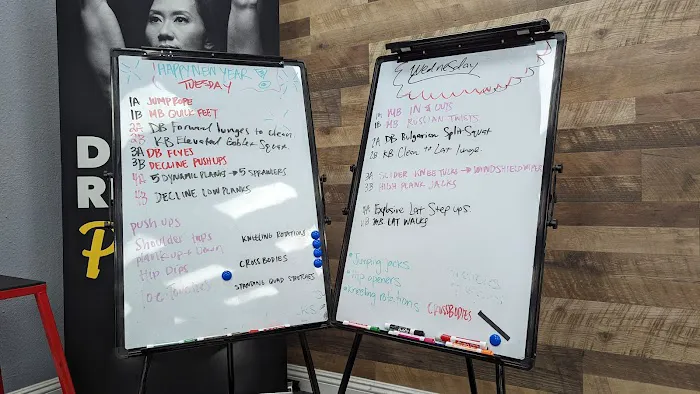 HAPPY NEW YEAR
TUESDAY
1A JUMP ROPE
1B MB QUICK FEET
2A DB Forward lunges to clean
2B KB Elevated Goblet Squat
3A DB FLYES
3B DECLINE PUSHUPS
5 DYNAMIC PLANKS → 5 SPRAWLERS
DECLINE LOW PLANKS
PUSH UPS
Shoulder taps
Plank up + Down
Hip Dips
KNEELING ROTATIONS
CROSSBODIES
STANDING QUAD STRETCHES
Wednesday
1A MB IN & OUTS
1B MB RUSSIAN TWISTS
2A DB Bulgarian Split Squat
2B KB Clean to Lat lunge
3A SLIDER KNEE TUCKS → WINDSHIELD WIPER
3B HIGH PLANK JACKS
4A Explosive Lat Step ups
4B LAT WALKS
Jumping jacks
Hip openers
Kneeling rotations
CROSSBODIES
D
R
P